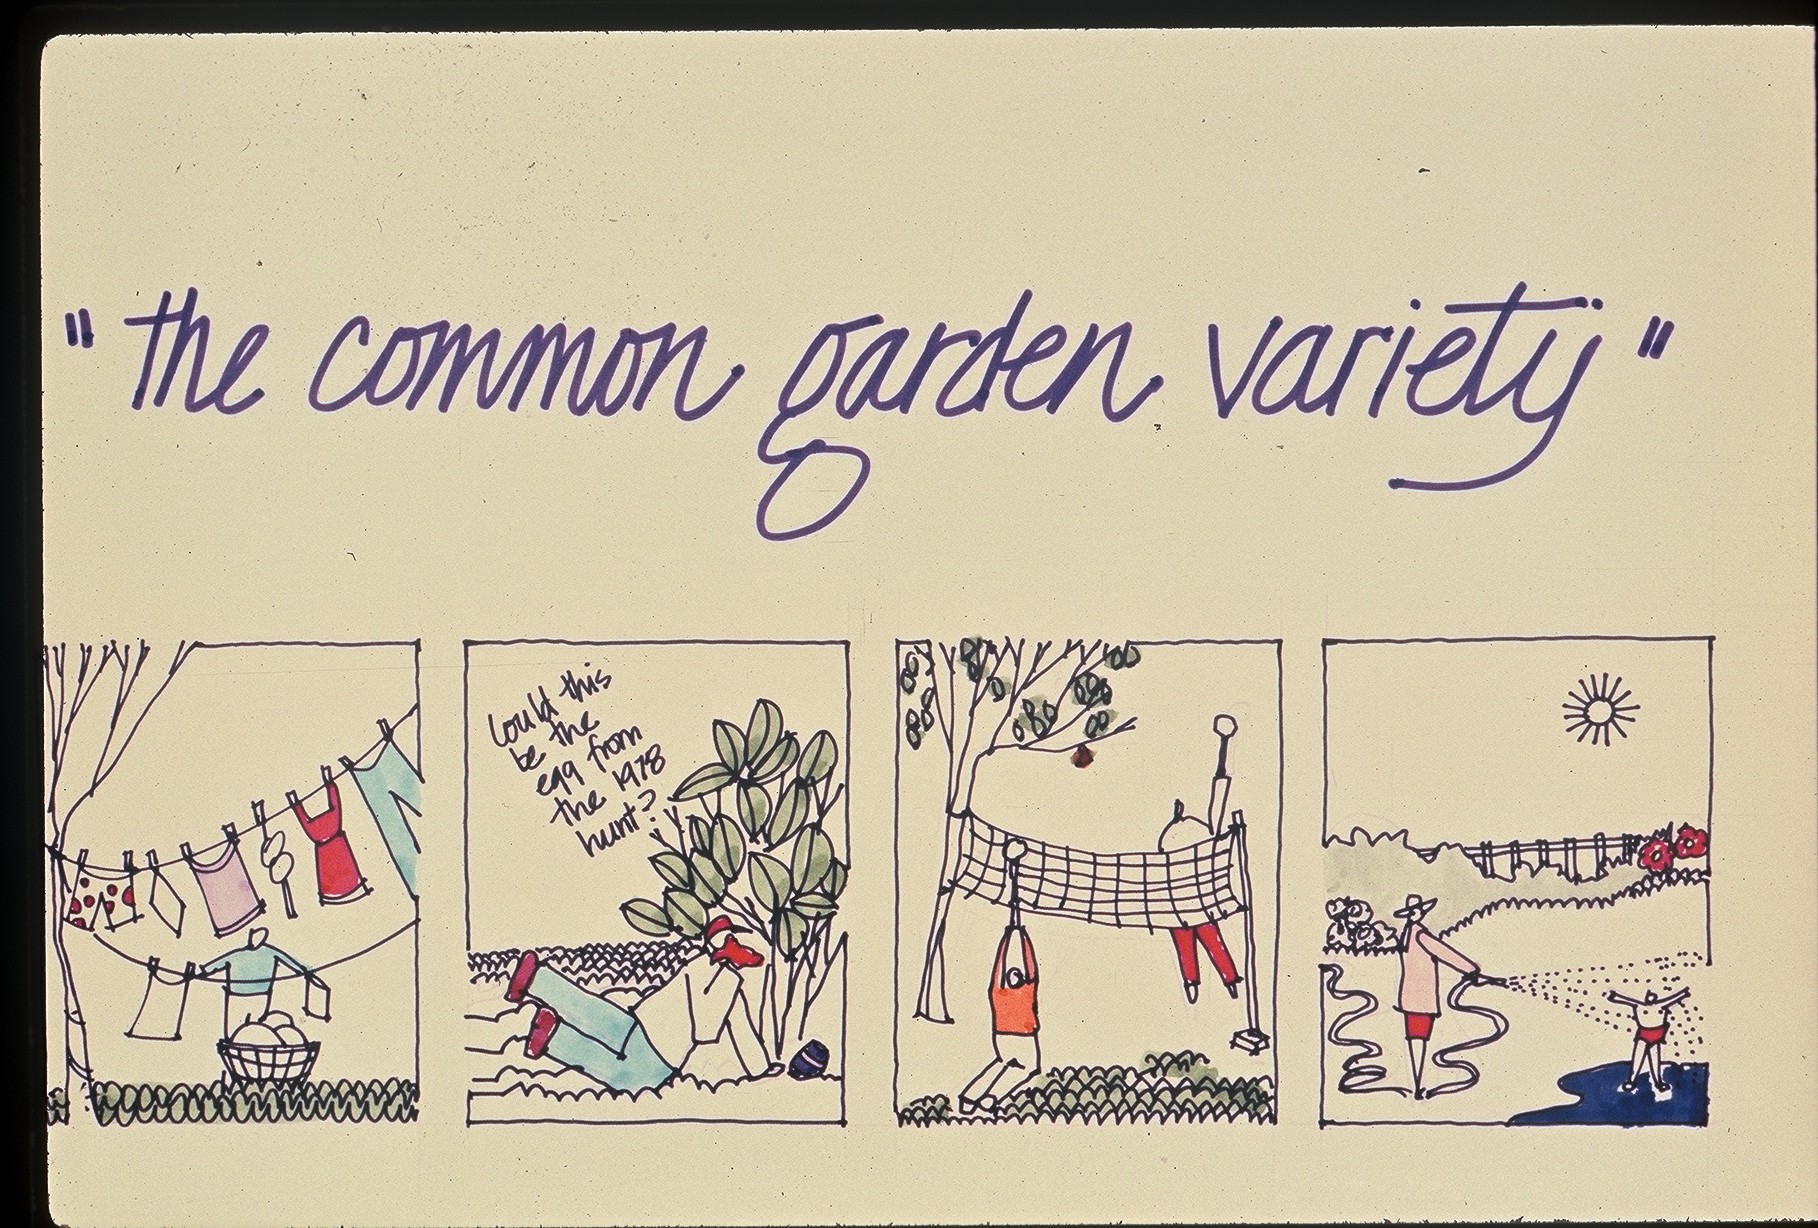 "the common garden variety"
Could this
be the
egg from
the 1978
hunt?